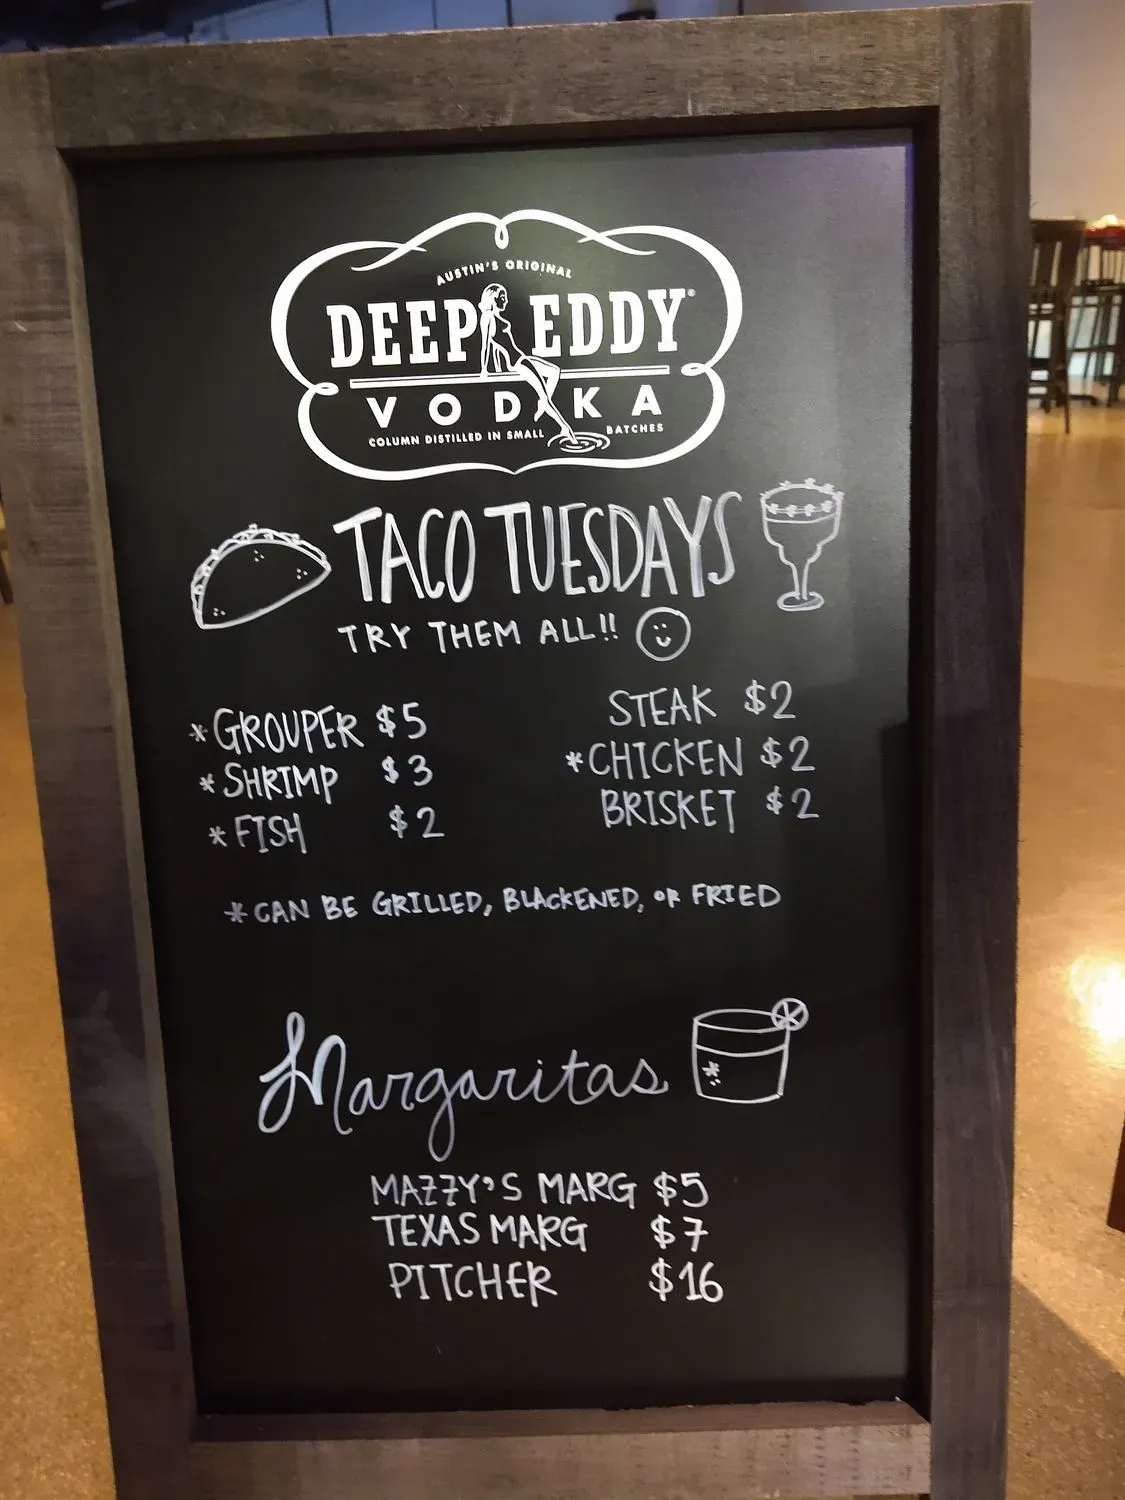 AUSTIN'S ORIGINAL
DEEP EDDY®
VODKA
COLUMN DISTILLED IN SMALL BATCHES
TACO TUESDAYS
TRY THEM ALL!!
*GROUPER $5
*SHRIMP $3
*FISH $2
STEAK $2
*CHICKEN $2
BRISKET $2
*CAN BE GRILLED, BLACKENED, OR FRIED
Margaritas
MAZZY'S MARG $5
TEXAS MARG $7
PITCHER $16